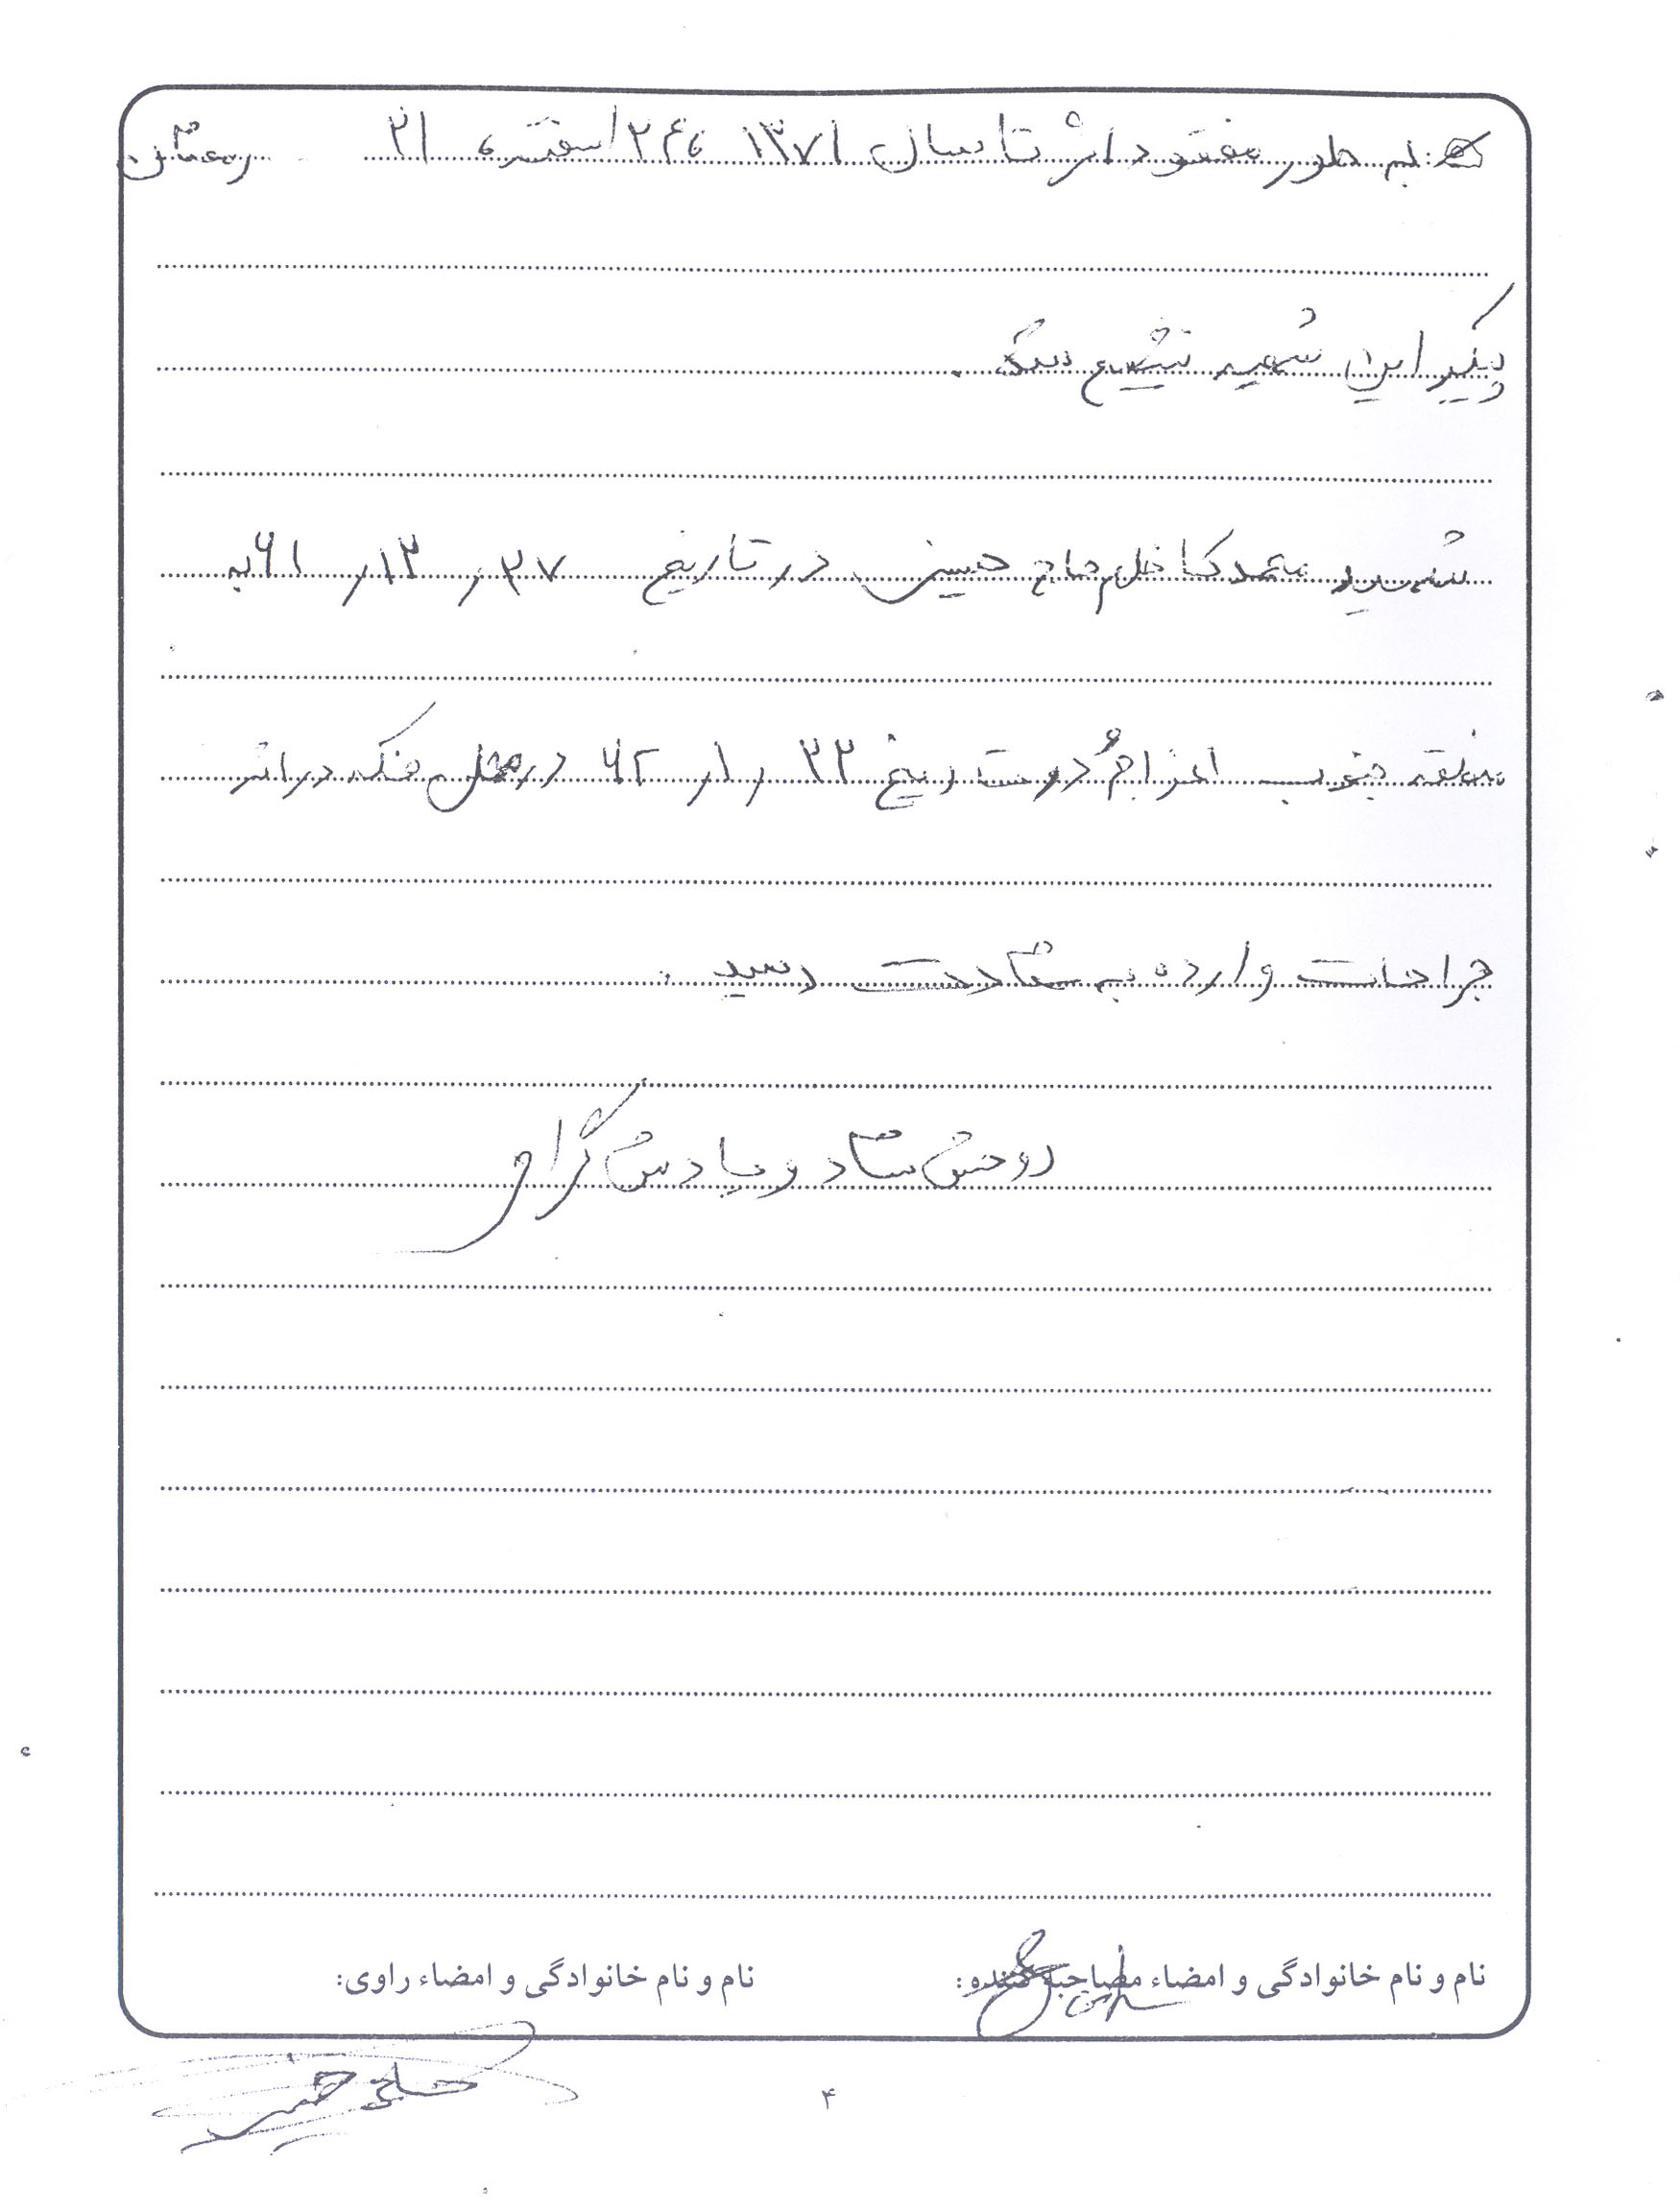 به طور مفقود اثر تا سال ۱۳۷۱ ۲۴ اسفند ۲۱ رمضان
پیکر این شهید تشیع شد.
شهید محمد کاظم حاج حسینی در تاریخ ۲۷ / ۱۲ / ۶۱ به
منطقه جنوب اعزام و در تاریخ ۲۲ / ۱ / ۶۲ در محل فکه در اثر
جراحات وارده به شهادت رسید.
روحش شاد و یادش گرامی
نام و نام خانوادگی و امضاء مصاحبه کننده:
نام و نام خانوادگی و امضاء راوی:
حاج حسینی
۴